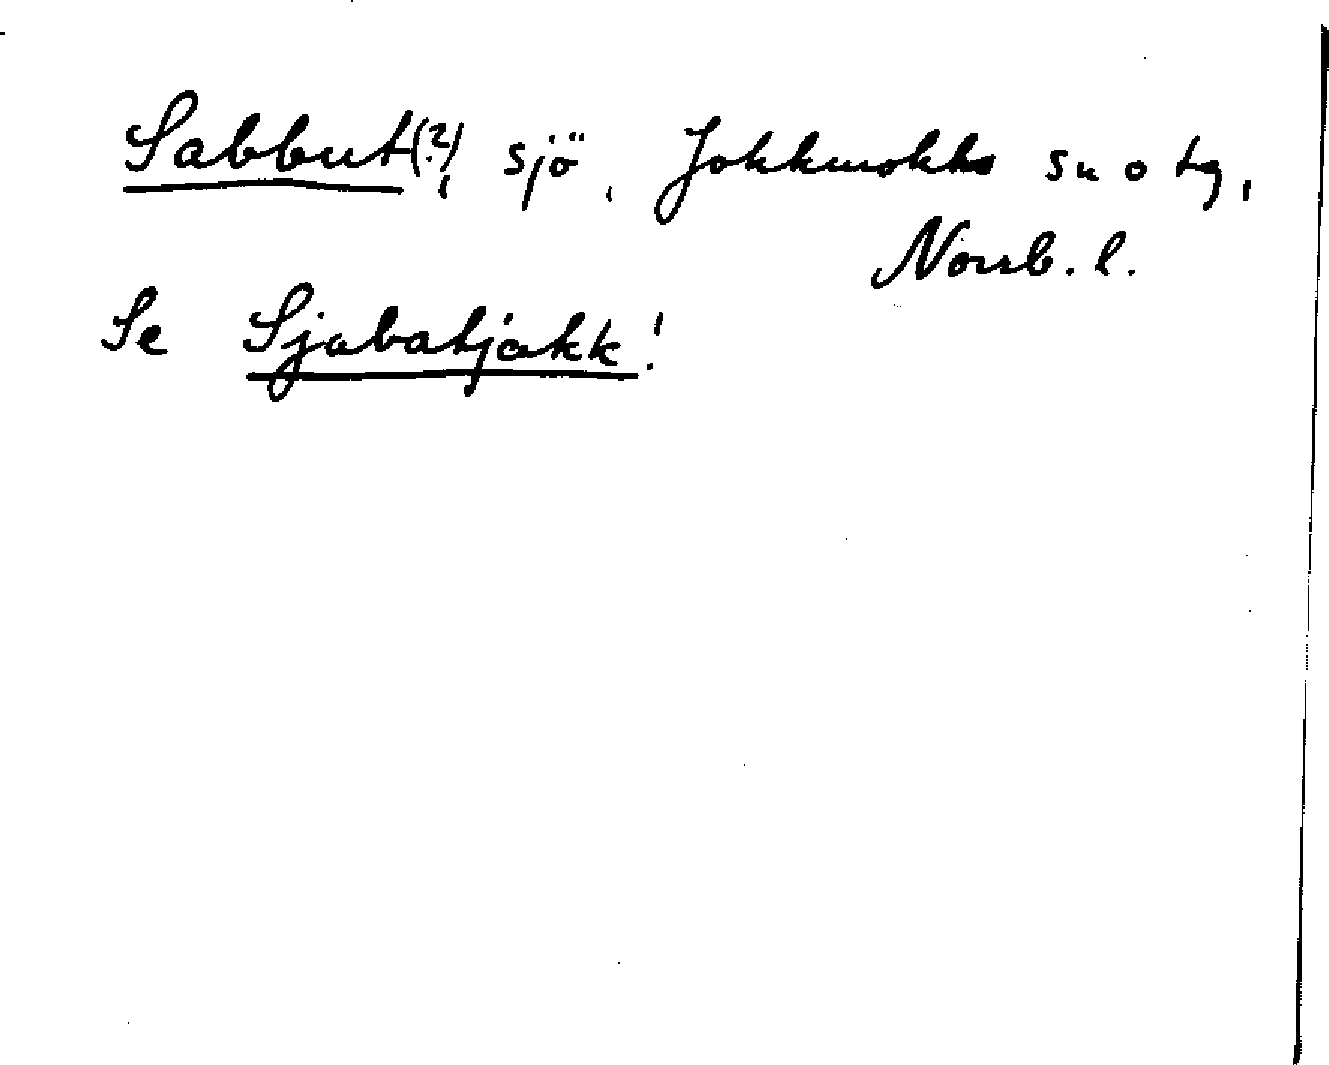 Sabbut(?), sjö, Jokkmokks sn o tg,
Norrb. l.
Se Sjabatjakk!